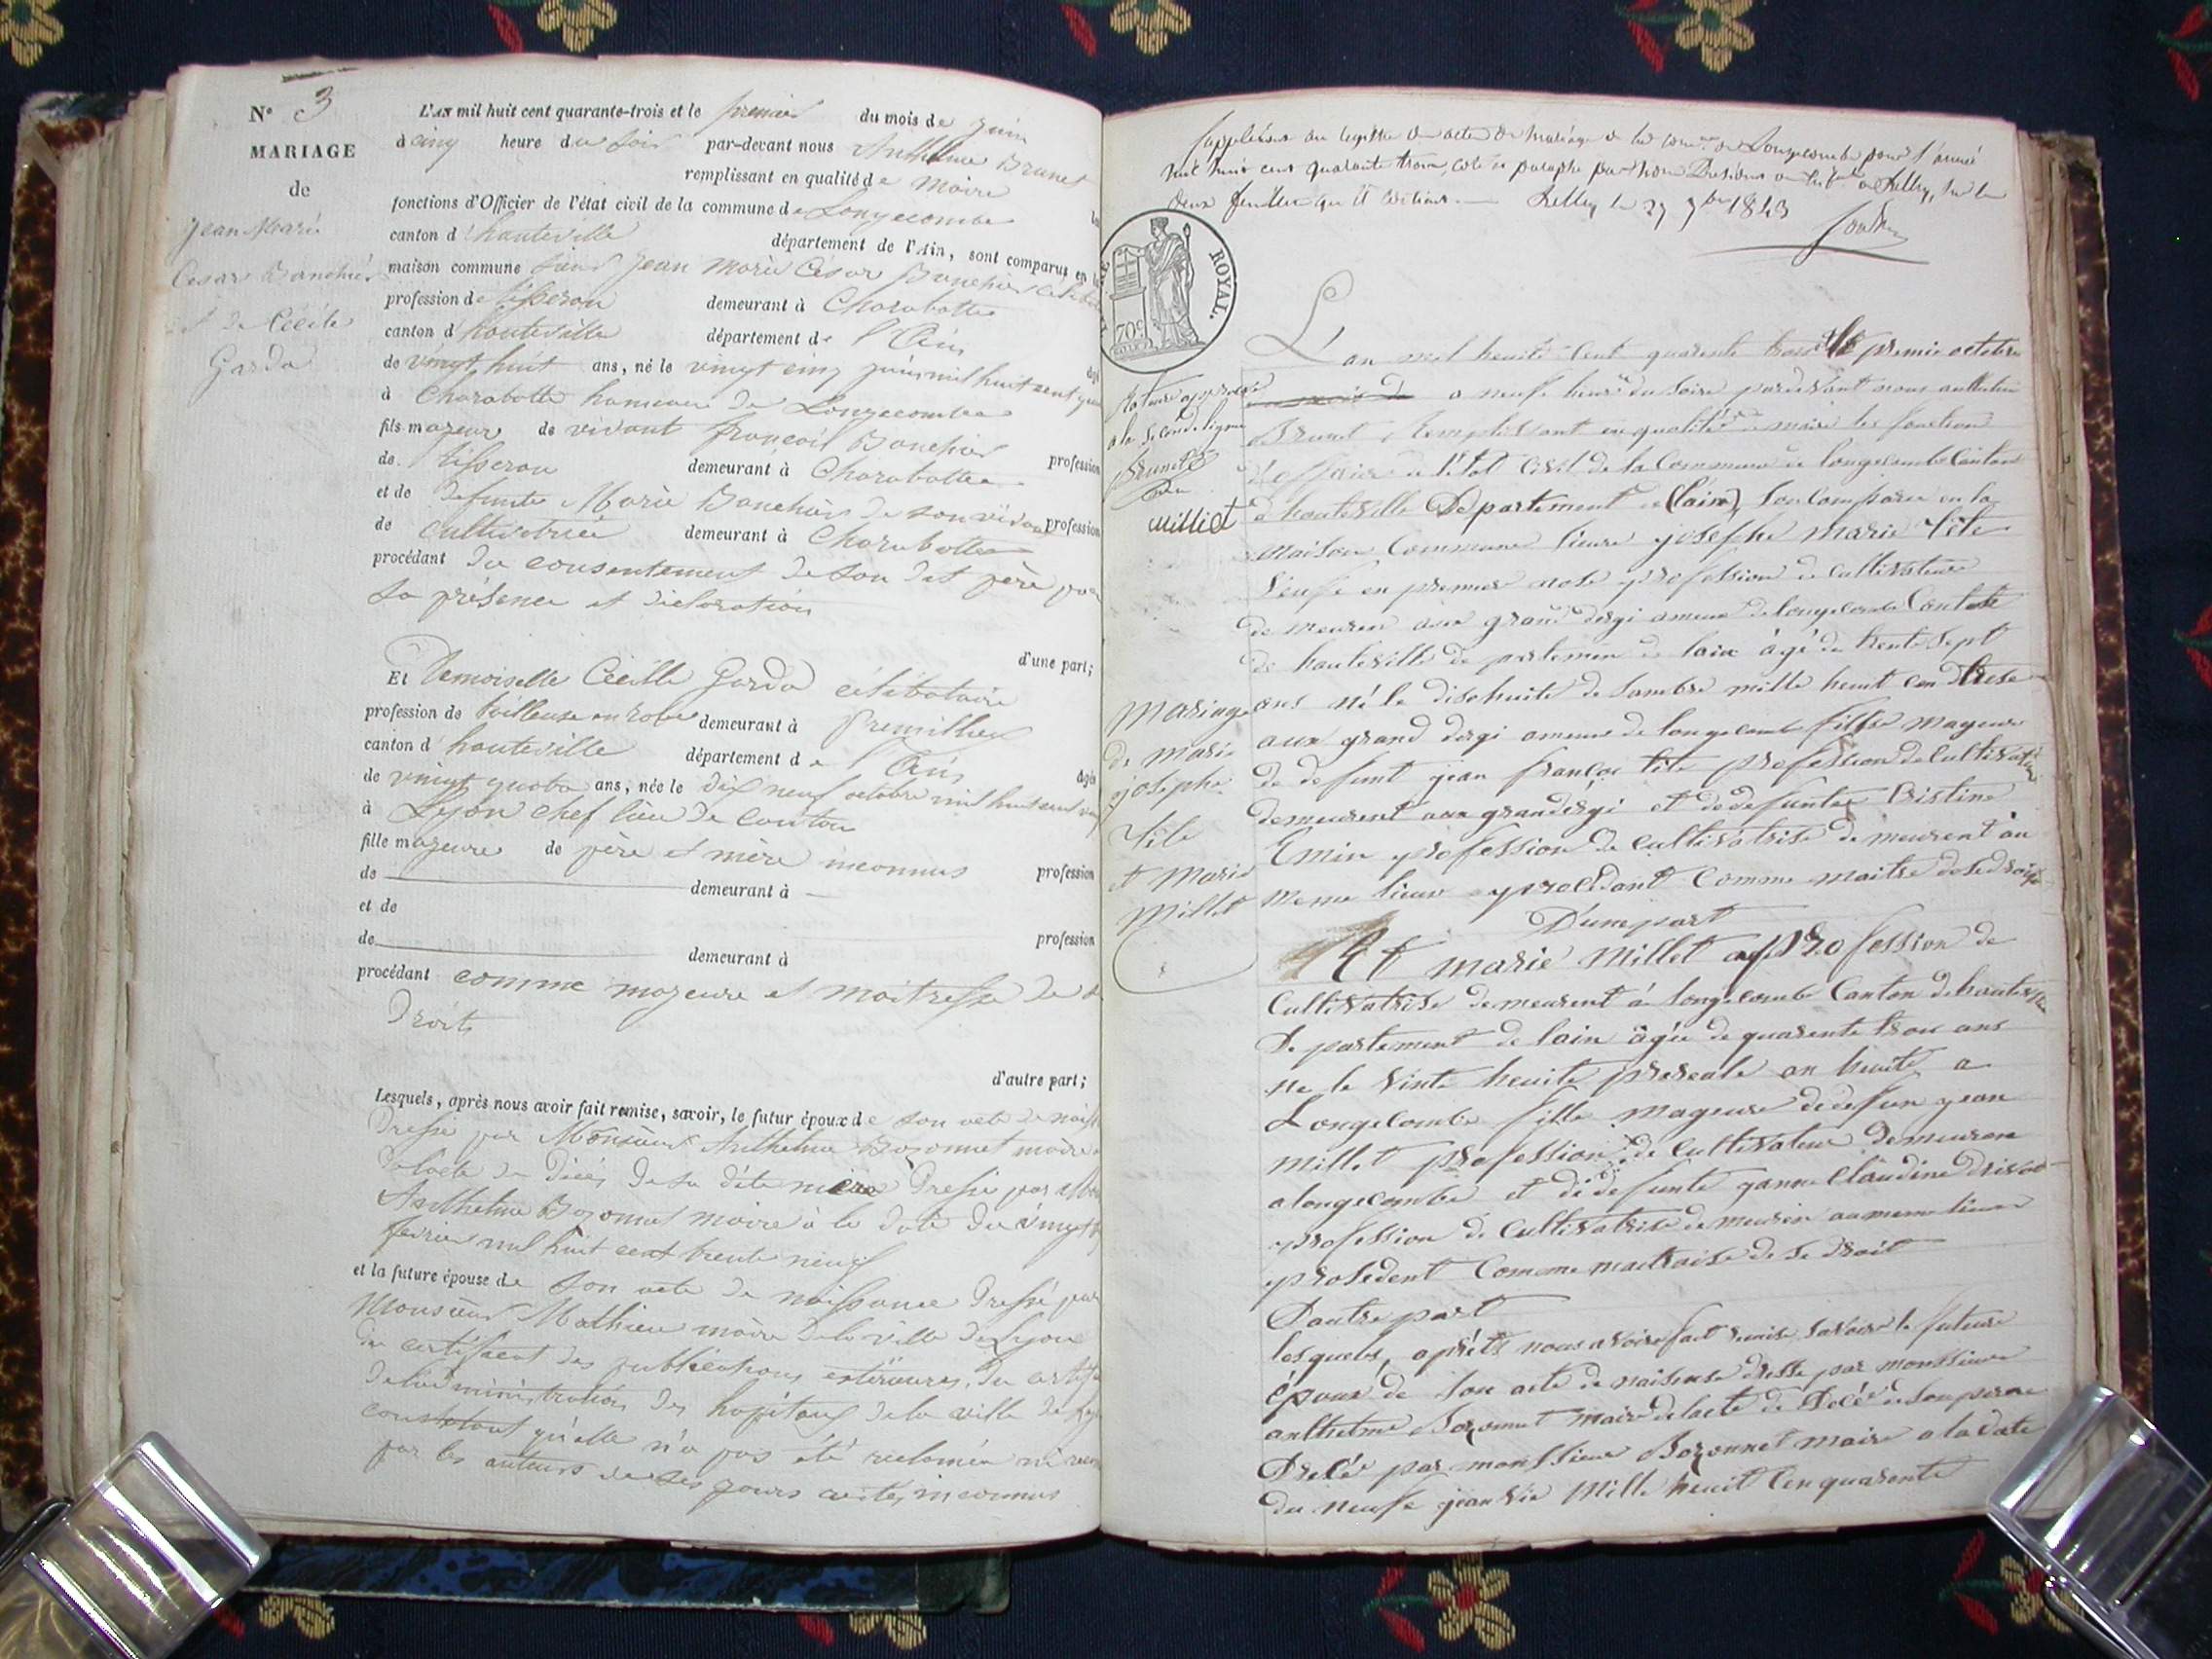 N° 3
MARIAGE
de
Jean Marie
Cesar Banchier
et de Cécile
Garda
L'AN mil huit cent quarante-trois et le premier du mois de juin
à cinq heure du soir par-devant nous Anthelme Brunet
remplissant en qualité de maire
fonctions d'Officier de l'état civil de la commune de Longecombe
canton d'hauteville département de l'Ain, sont comparus en la
maison commune sieur Jean Marie César Banchier célibat
profession de tisseran demeurant à Charabotte
canton d'hauteville département de l'Ain
de vingt huit ans, né le vingt cinq juin mil huit cent
à Charabotte hameau de Longecombe
fils majeur de vivant françois Banchier profession
de tisseran demeurant à Charabotte
et de defunte Marie Banchier de son vivant profession
de cultivatrice demeurant à Charabotte
procédant du consentement de son dit père par
sa présence et déclaration
d'une part;
Et demoiselle Cécille Garda célibataire
profession de tailleuse en robe demeurant à Premillieu
canton d'hauteville département de l'Ain âgée
de vingt quatre ans, née le dix neuf octobre mil huit cent
à Lyon chef lieu de canton
fille majeure de père et mère inconnus profession
de demeurant à
et de profession
de demeurant à
procédant comme majeure et maitresse de
droits
d'autre part;
Lesquels, après nous avoir fait remise, savoir, le futur époux de son acte de naiss
Dressé par Monsieur Anthelme Bozonnet maire
de l'acte de décès de sa dite mère Dressé par
Anthelme Bozonnet maire à la date du vingt
fevrier mil huit cent trente neuf
et la future épouse de son acte de naissance Dressé par
Monsieur Mathieu maire de la ville de Lyon
Du certificat des publications extérieures, du certif
de l'administration des hopitaux de la ville de Lyon
constatant qu'elle n'a pas été reclamée ni
par les auteurs de ses jours inconnus
Supplément au registre des actes de mariage de la com.ne de Longecombe pour l'année
mil huit cent quarante trois, coté et paraphé par nous Président du tribunal de Belley, sur les
deux feuilles qu'il contient. Belley le 27 7bre 1843
ROYAL.
70c
Rature approuvé
a la seconde ligne
Brunet
Milliet
Mariage
de marie
josephe
Tête
et Marie
Millet
L'an mil heuite cent quarente trois le premie octobre
a neufe heure du soire pardevant nous anthelme
Brunet Remplissant en qualité de maire les fonction
d'officier de l'état civil de la Commune de longecombe Canton
d hauteville Departement de (l'ain) son Comparue en la
maison Commune sieure josephe marie Tête
veufe en premier nose profession de cultivateur
de meuren aux grand dergi ameau de longecombe Canton
de hauteville de partemen de lain âgé de trente sept
ans né le dischuite de sambre mille heuit cen
aux grand dergi ameau de longecombe fills mageur
de defunt jean françoi tête profession de cultivateur
demeurent aux grandergi et de defuntee Cristine
Emin profession de cultivatrise de meurent au
meme lieux procedant Comme maitre de se droit
D'unepart
Et marie Millet profession de
Cultivatrise de meurent á longecombe Canton de hauteville
De partement de lain âgée de quarente trois ans
ne le vinte heuite prereale an heuite a
Longecombe fille mageure de defun jean
millet profession de Cultivateur demeuren
a longecombe et de defunte janne Claudine
profession de Cultivatrise de meuren au meme lieux
prosedent Comme maitraise de se droit
D'autre part
lesquels, aprêts nous avoire fait remise savoire le future
époux de son acte de naisense dresse par monssieur
anthelme Bozonnet maire de lacte de Décé de son perre
Drecée par monssieur Bozonnet maire a la date
du neufe jeanvié Mille heuit Cen quarente